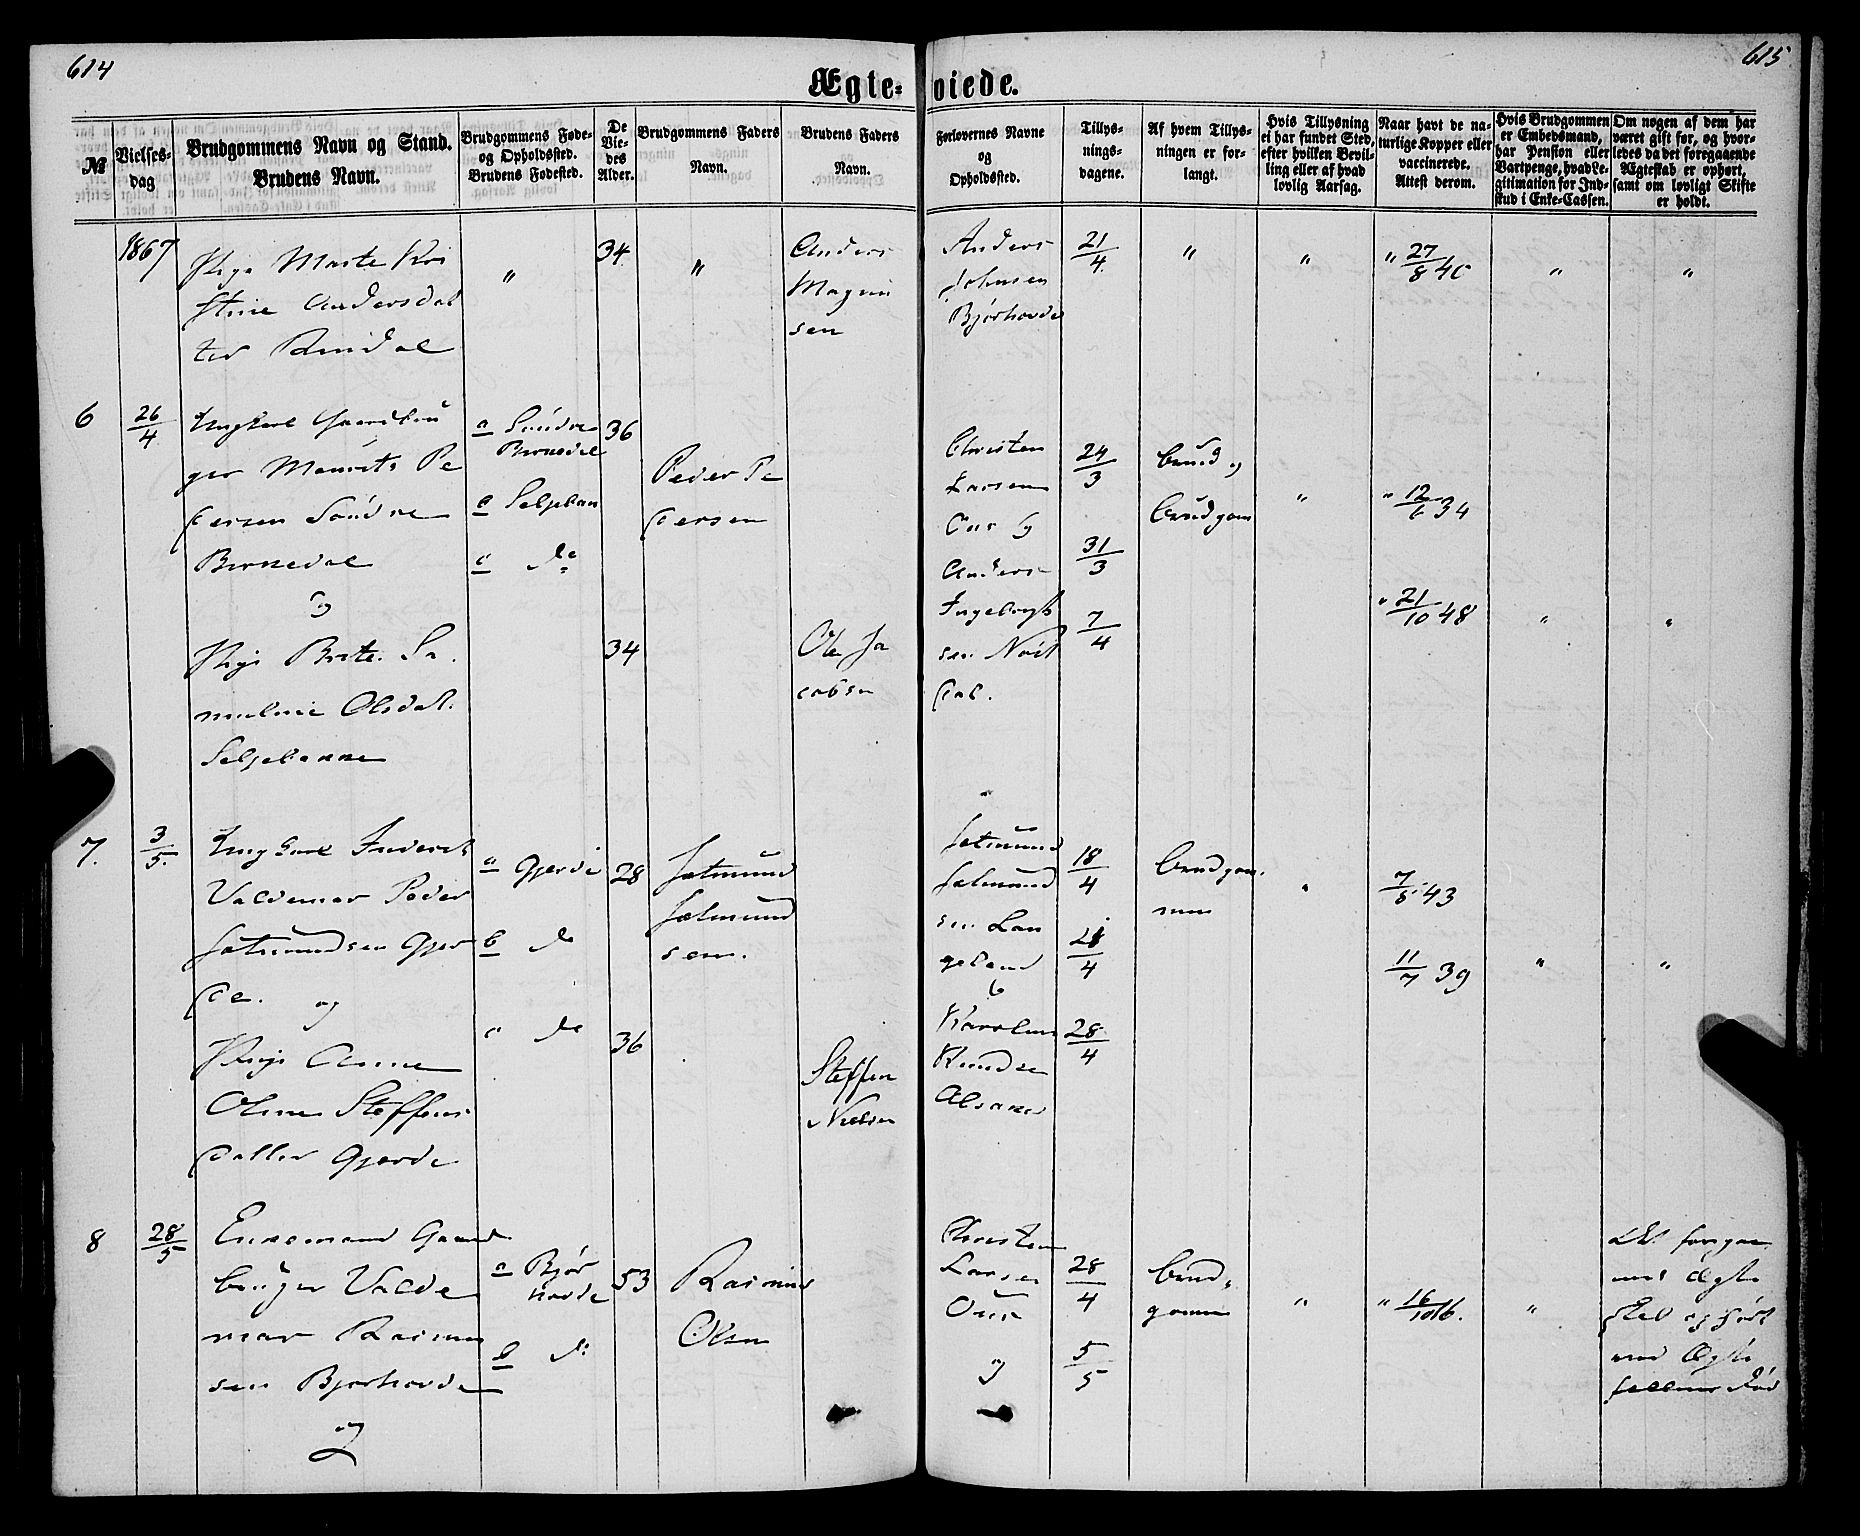 614
615
Ægte-
viede.
№
Vielses-
dag
Brudgommens Navn og Stand.
Brudens Navn.
Brudgommens Føde-
og Opholdssted.
Brudens Fødested.
De
Vie-
des
Alder.
Brudgommens Faders
Navn.
Brudens Faders
Navn.
Forlovernes Navne
og
Opholdssted.
Tillys-
nings-
dagene.
Af hvem Tillys-
ningen er for-
langt.
Hvis Tillysning
ei har fundet Sted,
efter hvilken Bevil-
ling eller af hvad
lovlig Aarsag.
Naar havt de na-
turlige Kopper eller
vaccinerede.
Attest derom.
Hvis Brudgommen
er Embedsmand,
har Pension eller
Vartpenge, hvad Le-
gitimation for Ind-
skud i Enke-Cassen.
Om nogen af dem har
været gift før, og hvor-
ledes da det foregaaende
Ægteskab er ophørt,
samt om lovligt Skifte
er holdt.
1867
Pige Marte Kri
stine Andersdat
ter Rindal
"
34
"
Anders
Magnu
sen
Anders
Johnsen
Bjørhovde
21/4
"
"
" 27/8 40
"
"
6
26/4
Ungkarl Gaardbru
ger Mourits Pe
dersen Søndre
Bernedal
og
Pige Brite Sa
muline Olsdat.
Seljebanne
a Søndre
Bernedal
b Seljeban
c do
36
34
Peder Pe
dersen
Ole Ja
cobsen
Christen
Larsen
Ous og
Anders
Ingebrigt
sen
dal.
24/3
31/3
7/4
brud og
brudgom
"
" 12/6 34
" 21/10 48
"
"
7.
3/5.
Ungkarl
Valdemar Peder
Jetmundsen Gjer
de. og
Pige Anne
Oline Steffens
datter Gjerde
a Gjerde
b do
c do
28
36
Jetmund
Jetmund
sen.
Steffen
Nielsen
Jetmund
Jetmund
sen Lan
geland
&
Karolus
Knudsen
18/4
21/4
28/4
brudgom
men
"
7/8 43
11/7 39
"
"
8
28/5
Enkemand Gaard
bruger Valde
mar Rasmus
sen Bjørhovde
og
a Bjør
hovde
b do
53
Rasmus
Olsen
Christen
Larsen
Ous
og
28/4
5/5
brud
gommen
"
" 16/10 16.
"
Det foregaa
ende Ægte
skab ophørt
ved Ægte
fællens Død